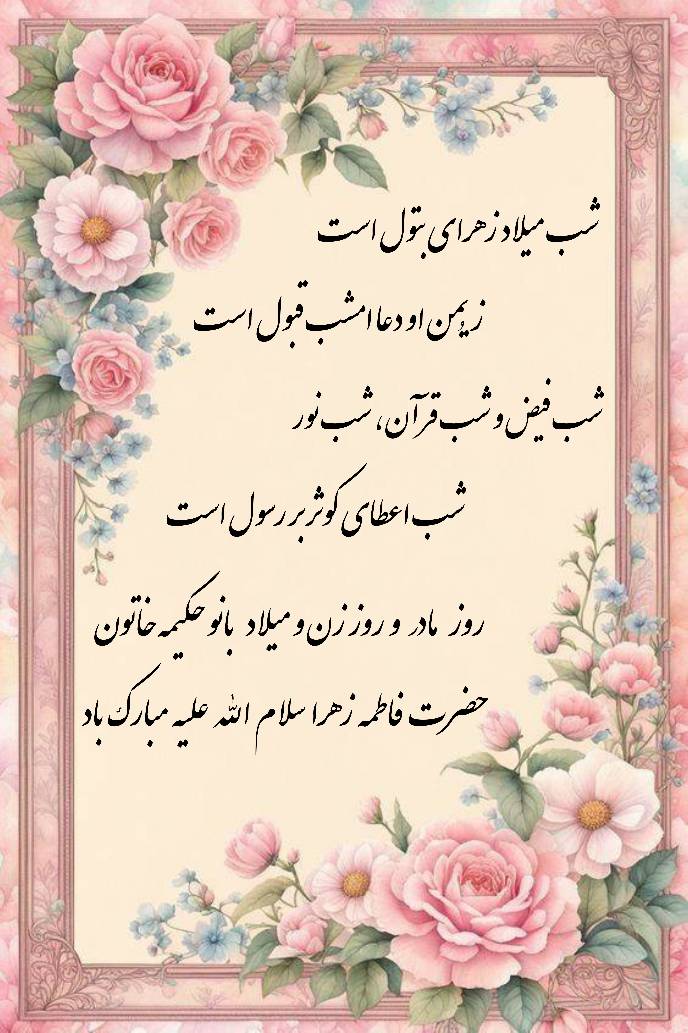 شب میلاد زهرای بتول است
ز یُمن او دعا امشب قبول است
شب فیض و شب قرآن، شب نور
شب اعطای کوثر بر رسول است
روز مادر و روز زن و میلاد بانو حکیمه خاتون
حضرت فاطمه زهرا سلام الله علیه مبارک باد